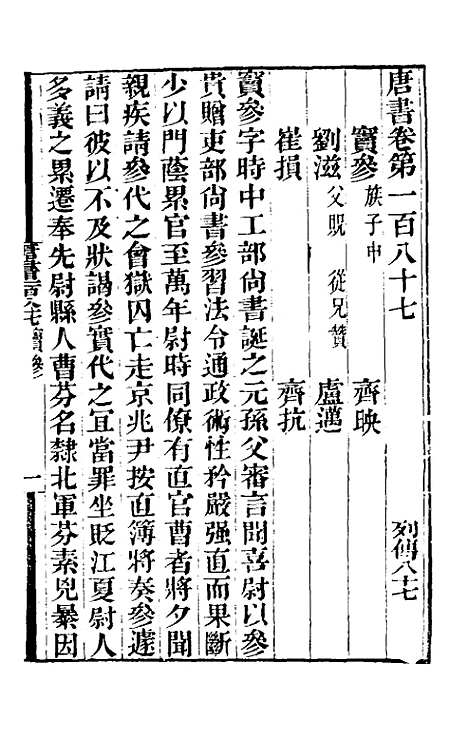 唐書卷第一百八十七 列傳八十七
竇參 族子申 齊映
劉滋 父貺 從兄贊 盧邁
崔損 齊抗
竇參字時中工部尚書誕之元孫父審言聞喜尉以參
貴贈吏部尚書參習法令通政術性矜嚴强直而果斷
少以門蔭累官至萬年尉時同僚有直官曹者將夕聞
親疾請參代之會獄囚亡走京兆尹按直簿將奏參遽
請曰彼以不及狀謁參實代之宜當罪坐貶江夏尉人
多義之累遷奉先尉縣人曹芬名隸北軍芬素兇暴因
唐書一百八十七 竇參 一